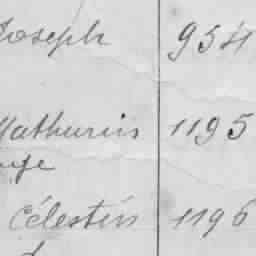 Joseph 954
Mathurin 1195
Célestin 1196